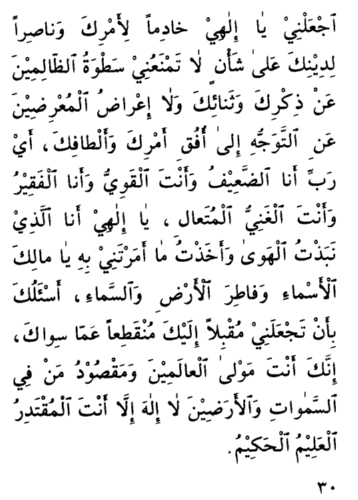 ٱجْعَلْنِيْ يٰا إِلٰهِيْ خادِماً لِأَمْرِكَ وَناصِراً
لِدِيْنِكَ عَلىٰ شَأْنٍ لٰا تَمْنَعُنِيْ سَطْوَةُ ٱلظّالِمِيْنَ
عَنْ ذِكْرِكَ وَثَنائِكَ وَلٰا إِعْراضُ ٱلْمُعْرِضِيْنَ
عَنِ ٱلتَّوَجُّهِ إِلىٰ أُفُقِ أَمْرِكَ وَأَلْطافِكَ، أَيْ
رَبِّ أَنا ٱلضَّعِيْفُ وَأَنْتَ ٱلْقَوِيُّ وَأَنا ٱلْفَقِيْرُ
وَأَنْتَ ٱلْغَنِيُّ ٱلْمُتَعال، يا إِلٰهِيْ أَنا ٱلَّذِيْ
نَبَذْتُ ٱلْهَوىٰ وَأَخَذْتُ مٰا أَمَرْتَنِيْ بِهِ يٰا مالِكَ
ٱلْأَسْماءِ وَفاطِرَ ٱلْأَرْضِ وَٱلسَّماءِ، أَسْئَلُكَ
بِأَنْ تَجْعَلَنِيْ مُقْبِلاً إِلَيْكَ مُنْقَطِعاً عَمّا سِواكَ،
إِنَّكَ أَنْتَ مَوْلىٰ ٱلْعالَمِيْنَ وَمَقْصُوْدُ مَنْ فِي
السَّمٰواتِ وَٱلْأَرَضِيْنَ لٰا إِلٰهَ إِلَّا أَنْتَ ٱلْمُقْتَدِرُ
ٱلْعَلِيْمُ ٱلْحَكِيْمُ.
٣٠